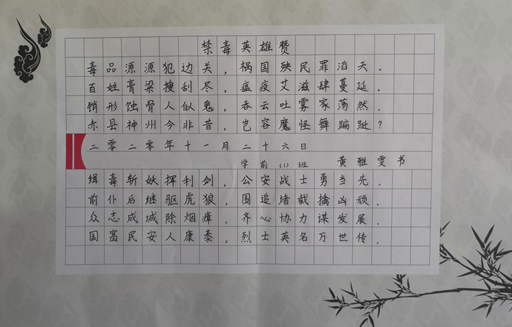 禁毒英雄赞
毒品源源犯边关，祸国殃民罪滔天。
百姓膏粱搜刮尽，瘟疫艾滋肆蔓延。
销形蚀骨人似鬼，吞云吐雾家荡然。
赤县神州今非昔，岂容魔怪舞蹁跹？
二零二零年十一月二十六日
学前(1)班 黄雅雯书
缉毒斩妖挥利剑，公安战士勇当先。
前仆后继驱虎狼，围追堵截擒凶顽。
众志成城除烟瘴，齐心协力谋发展。
国富民安人康泰，烈士英名万世传。